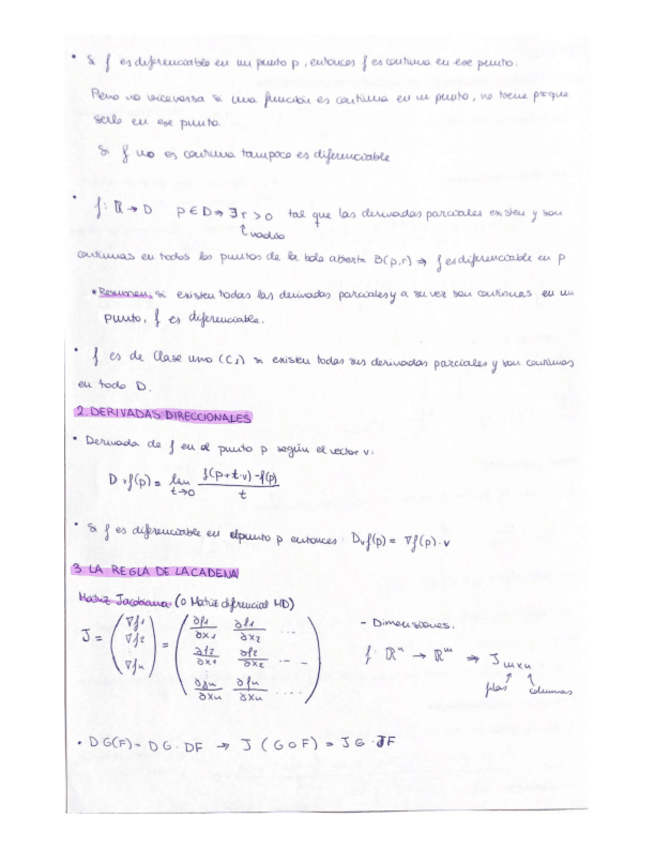 • Si f es diferenciable en un punto p, entonces f es continua en ese punto.
Pero no viceversa si una función es continua en un punto, no tiene porque
serlo en ese punto.
Si f no es continua tampoco es diferenciable
• f: ℝ → D p ∈ D ⇒ ∃ r > 0 tal que las derivadas parciales existen y son
↑ radio
continuas en todos los puntos de la bola abierta B(p,r) ⇒ f es diferenciable en p
• Resumen, si existen todas las derivadas parciales y a su vez son continuas en un
punto, f es diferenciable.
• f es de clase uno (C₁) si existen todas sus derivadas parciales y son continuas
en todo D.
2. DERIVADAS DIRECCIONALES
• Derivada de f en el punto p según el vector v.
D v f(p) = lim t→0 f(p+t·v) - f(p) / t
• Si f es diferenciable en el punto p entonces: Dvf(p) = ∇f(p)·v
3. LA REGLA DE LA CADENA
Matriz Jacobiana (o Matriz diferencial MD)
- Dimensiones.
J = (∇f1 ∇f2 ⋮ ∇fn) = (∂f1/∂x1 ∂f1/∂x2 ... ∂f2/∂x1 ∂f2/∂x2 ... ∂fn/∂xn ∂fn/∂xn ....)
f: ℝⁿ → ℝᵐ ⇒ J mxn
filas columnas
• DG(F) = DG · DF → J (G o F) = JG · JF